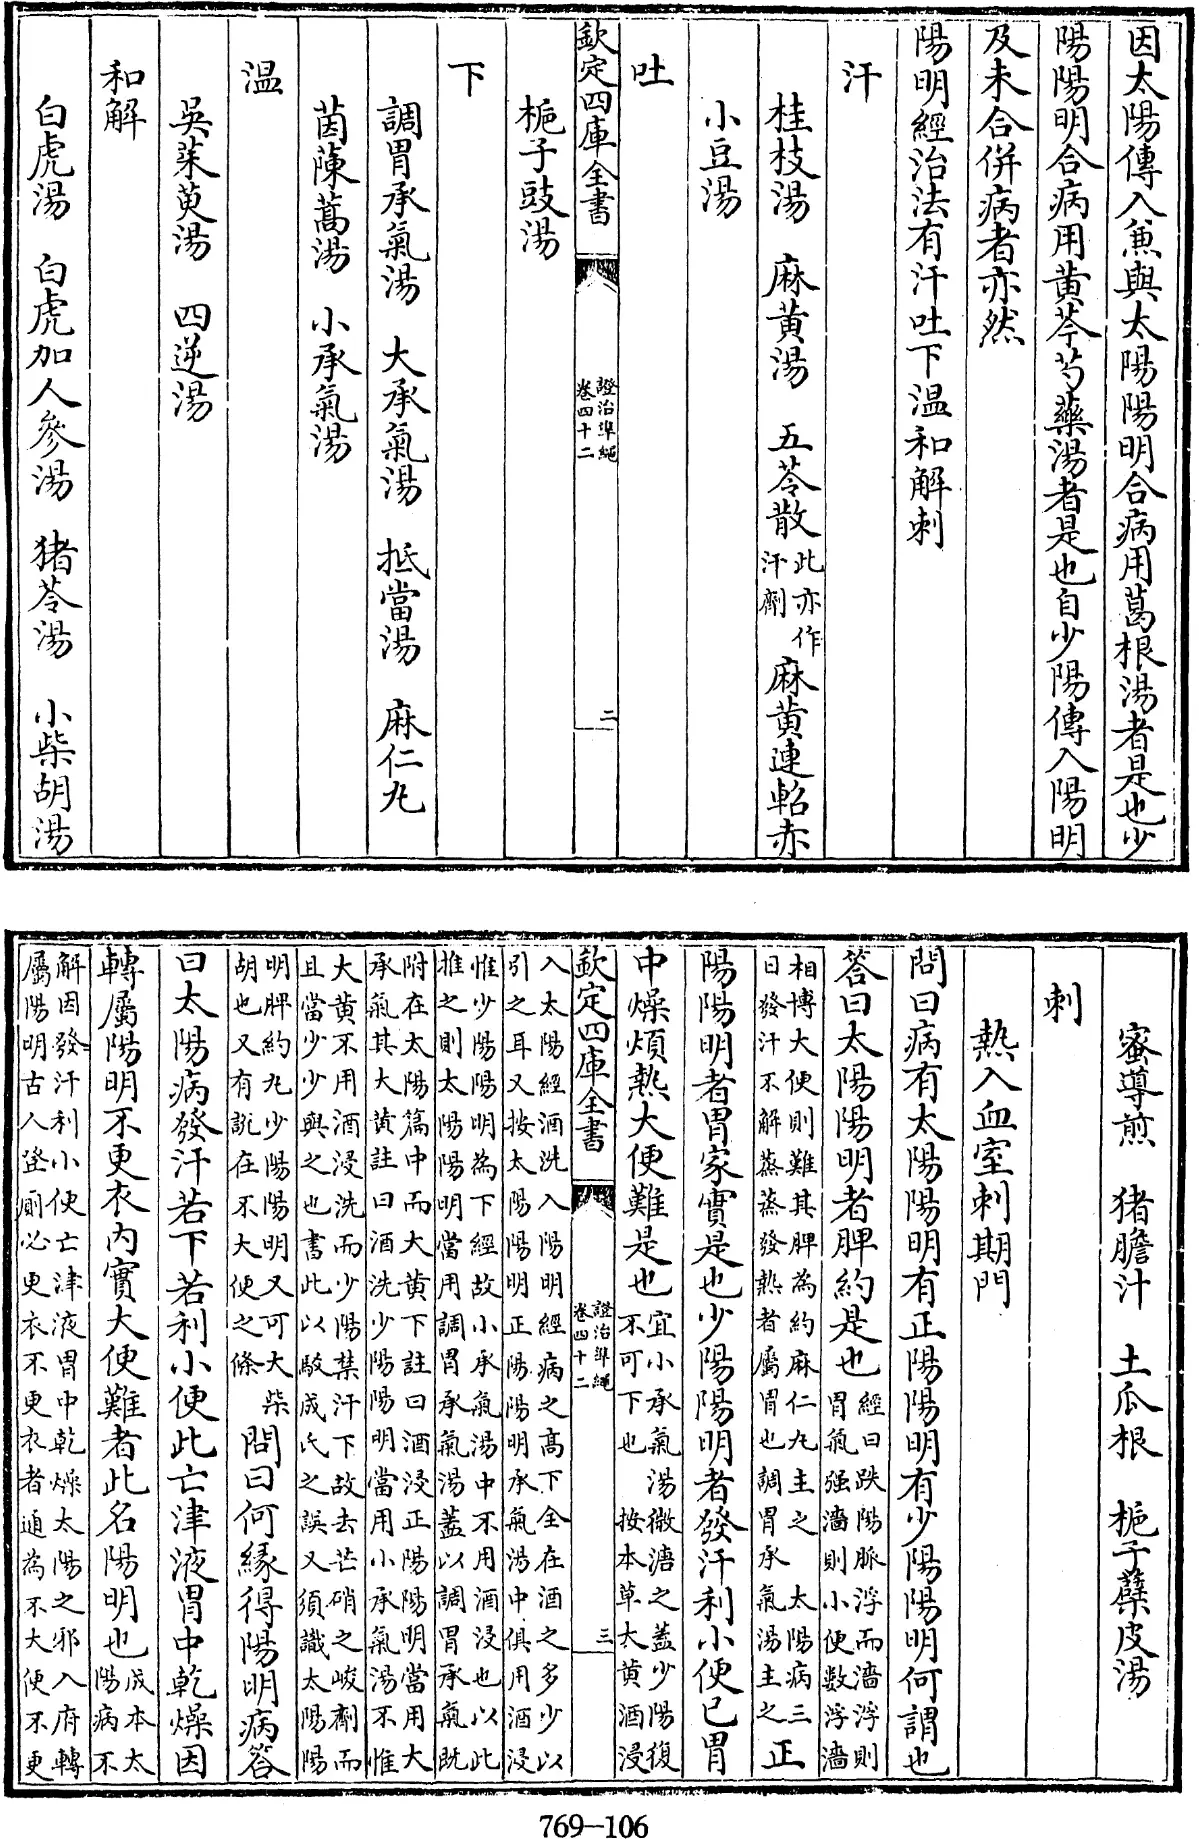 因太陽傳入兼與太陽陽明合病用葛根湯者是也少
陽陽明合病用黄芩芍藥湯者是也自少陽傳入陽明
及未合併病者亦然
陽明經治法有汗吐下温和解刺
汗
桂枝湯　麻黄湯　五苓散此亦作汗劑　麻黄連軺赤
小豆湯
吐
梔子豉湯
下
調胃承氣湯　大承氣湯　抵當湯　麻仁丸
茵蔯蒿湯　小承氣湯
温
吳茱萸湯　四逆湯
和解
白虎湯　白虎加人參湯　猪苓湯　小柴胡湯
欽定四庫全書
證治準繩
卷四十二
二
蜜導煎　猪膽汁　土瓜根　梔子蘗皮湯
刺
熱入血室刺期門
問曰病有太陽陽明有正陽陽明有少陽陽明何謂也
答曰太陽陽明者脾約是也經曰趺陽脈浮而濇浮則
胃氣强濇則小便數浮濇
相博大便則難其脾為約麻仁丸主之　太陽病三
日發汗不解蒸蒸發熱者屬胃也調胃承氣湯主之正
陽陽明者胃家實是也少陽陽明者發汗利小便已胃
中燥煩熱大便難是也宜小承氣湯微溏之蓋少陽復
不可下也　按本草大黄酒浸
入太陽經酒洗入陽明經病之髙下全在酒之多少以
引之耳又按太陽陽明正陽陽明承氣湯中俱用酒浸
惟少陽陽明為下經故小承氣湯中不用酒浸也以此
推之則太陽陽明當用調胃承氣湯蓋以調胃承氣既
附在太陽篇中而大黄下註曰酒浸正陽陽明當用大
承氣其大黄註曰酒洗少陽陽明當用小承氣湯不惟
大黄不用酒浸洗而少陽禁汗下故去芒硝之峻劑而
且當少少與之也書此以駁成氏之誤又須識太陽陽
明脾約丸少陽陽明又可大柴
胡也又有說在不大便之條
問曰何緣得陽明病答
曰太陽病發汗若下若利小便此亡津液胃中乾燥因
轉屬陽明不更衣内實大便難者此名陽明也成本太
陽病不
解因發汗利小便亡津液胃中乾燥太陽之邪入府轉
屬陽明古人登厠必更衣不更衣者通為不大便不更
欽定四庫全書
證治準繩
卷四十二
三
769—106